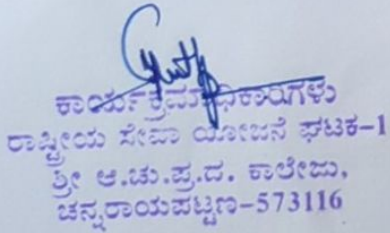 ಕಾರ್ಯಕ್ರಮಾಧಿಕಾರಿಗಳು
ರಾಷ್ಟ್ರೀಯ ಸೇವಾ ಯೋಜನೆ ಘಟಕ-1
ಶ್ರೀ ಆ.ಚು.ಪ್ರ.ದ. ಕಾಲೇಜು,
ಚನ್ನರಾಯಪಟ್ಟಣ-573116